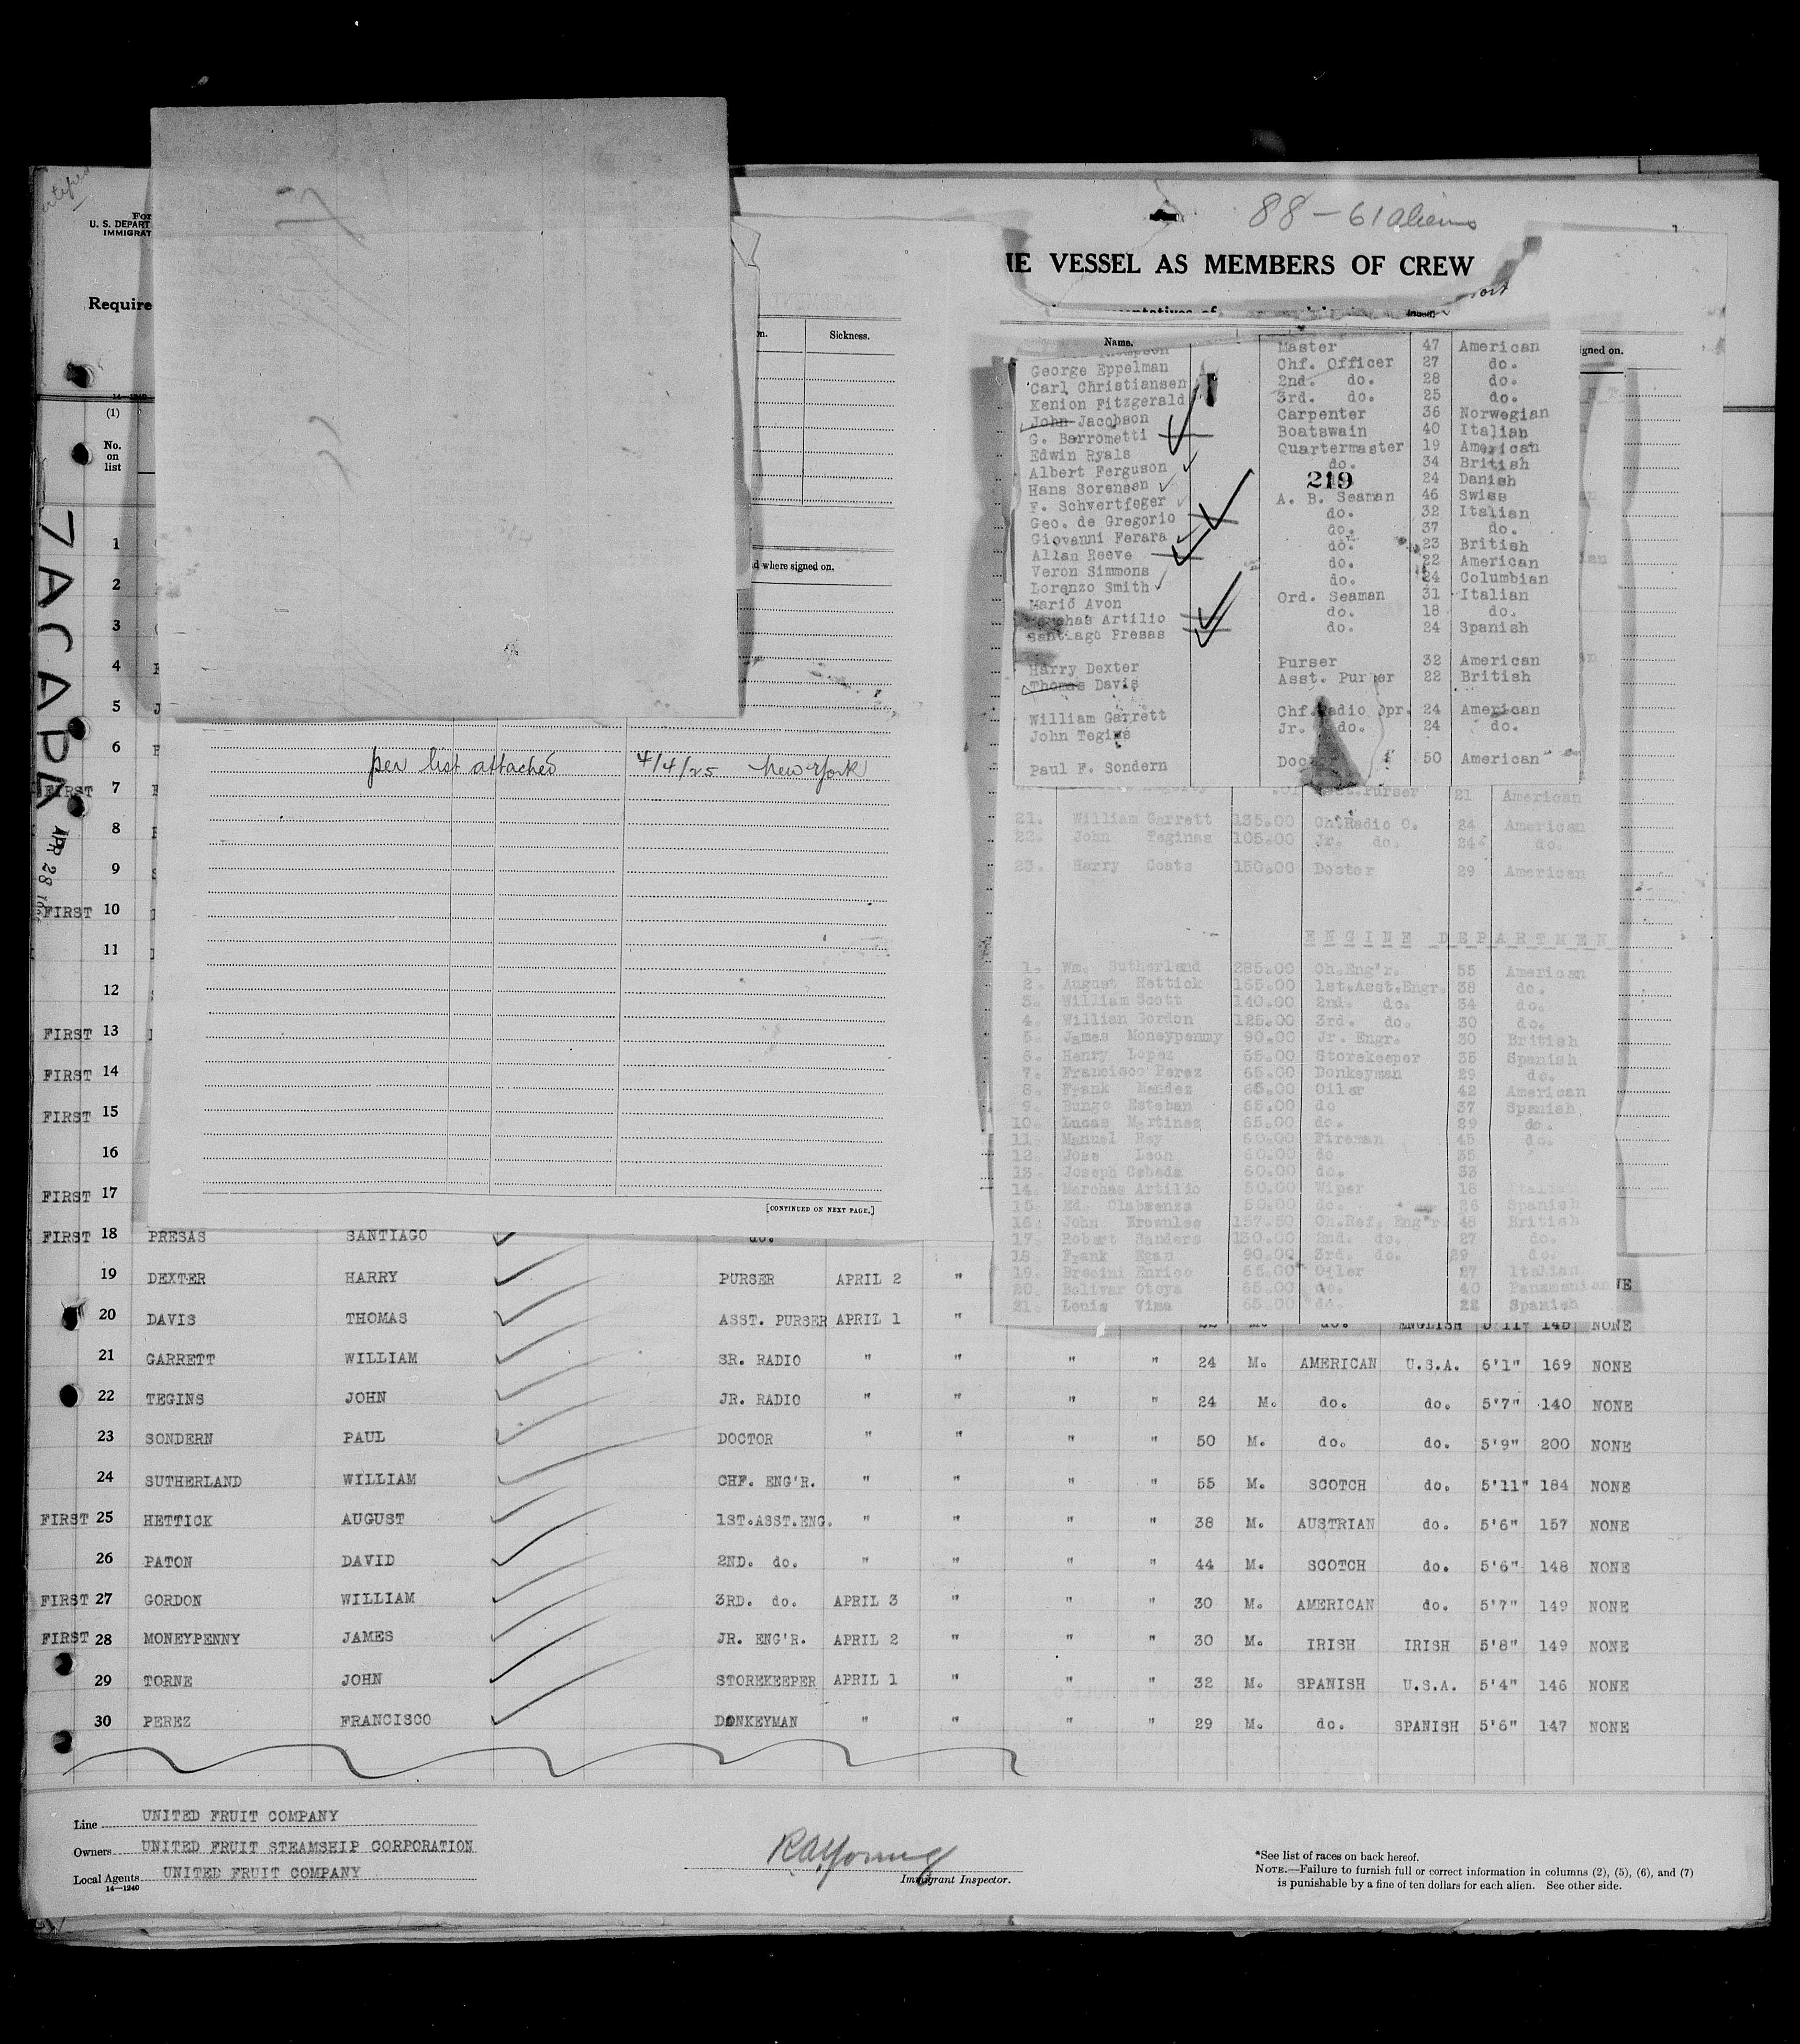 88 - 61 aliens
For
U. S. DEPART
IMMIGRAT
VESSEL AS MEMBERS OF CREW
Require
Sickness.
14—1240
(1)
No.
on
list
d where signed on.
igned on.
ZACAPA
APR 28
219
Name.
Master 47 American
George Eppelman Chf. Officer 27 do.
Carl Christiansen 2nd. do. 28 do.
Kenion Fitzgerald 3rd. do. 25 do.
John Jacobson Carpenter 36 Norwegian
G. Barrometti Boatswain 40 Italian
Edwin Ryals Quartermaster 19 American
Albert Ferguson do. 34 British
Hans Sorensen 24 Danish
F. Schvertfeger A. B. Seaman 46 Swiss
Geo. de Gregorio do. 32 Italian
Giovanni Ferara do. 37 do.
Allan Reeve do. 23 British
Veron Simmons do. 22 American
Lorenzo Smith do. 24 Columbian
Mario Avon Ord. Seaman 31 Italian
Artilio do. 18 do.
Santiago Presas do. 24 Spanish
Harry Dexter Purser 32 American
Thomas Davis Asst. Purser 22 British
William Garrett Chf. Radio Opr. 24 American
John Tegins Jr. do. 24 do.
Paul F. Sondern Doctor 50 American
Purser 21 American
21. William Garrett 135.00 Ch.Radio O. 24 American
22. John Teginas 105.00 Jr. do. 24 do.
23. Harry Coats 150.00 Doctor 29 American
ENGINE DEPARTMEN
1. Wm. Sutherland 285.00 Ch.Eng'r. 55 American
2. August Hettick 165.00 1st.Asst.Engr. 38 do.
3. William Scott 140.00 2nd. do. 34 do.
4. Willian Gordon 125.00 3rd. do. 30 do.
5. James Moneypenny 90.00 Jr. Engr. 30 British
6. Henry Lopez 65.00 Storekeeper 35 Spanish
7. Francisco Perez 65.00 Donkeyman 29 do.
8. Frank Mendez 65.00 Oiler 42 American
9. Bungo Esteban 65.00 do 37 Spanish
10. Lucas Martinez 65.00 do. 29 do.
11. Manuel Rey 60.00 Fireman 45 do.
12. Jose Leon 60.00 do 35
13. Joseph Cebada 60.00 do. 33
14. Marchas Artilio 50.00 Wiper 18 Italian
15. Ed. 50.00 do. 26 Spanish
16. John Brownlee 157.50 Ch.Ref. Eng'r. 48 British
17. Robert Sanders 130.00 2nd. do. 27 do.
18. Frank Egan 90.00 3rd. do. 29 do.
19. Enrico 65.00 Oiler 27 Italian
20. Bolivar Otoya 65.00 do. 40 Panamanian
21. Louis Vima 65.00 do. 22 Spanish
per list attached 4/4/25 New York
[CONTINUED ON NEXT PAGE.]
1
2
3
4
5
6
FIRST 7
8
9
FIRST 10
11
12
FIRST 13
FIRST 14
FIRST 15
16
FIRST 17
FIRST 18 PRESAS SANTIAGO do.
19 DEXTER HARRY PURSER APRIL 2 "
20 DAVIS THOMAS ASST. PURSER APRIL 1 " 22 M. do. ENGLISH 5'11" 145 NONE
21 GARRETT WILLIAM SR. RADIO " " " " 24 M. AMERICAN U.S.A. 6'1" 169 NONE
22 TEGINS JOHN JR. RADIO " " " " 24 M. do. do. 5'7" 140 NONE
23 SONDERN PAUL DOCTOR " " " " 50 M. do. do. 5'9" 200 NONE
24 SUTHERLAND WILLIAM CHF. ENG'R. " " " " 55 M. SCOTCH do. 5'11" 184 NONE
FIRST 25 HETTICK AUGUST 1ST.ASST.ENG. " " " " 38 M. AUSTRIAN do. 5'6" 157 NONE
26 PATON DAVID 2ND. do. " " " " 44 M. SCOTCH do. 5'6" 148 NONE
FIRST 27 GORDON WILLIAM 3RD. do. APRIL 3 " " " 30 M. AMERICAN do. 5'7" 149 NONE
FIRST 28 MONEYPENNY JAMES JR. ENG'R. APRIL 2 " " " 30 M. IRISH IRISH 5'8" 149 NONE
29 TORNE JOHN STOREKEEPER APRIL 1 " " " 32 M. SPANISH U.S.A. 5'4" 146 NONE
30 PEREZ FRANCISCO DONKEYMAN " " " " 29 M. do. SPANISH 5'6" 147 NONE
Line UNITED FRUIT COMPANY
Owners UNITED FRUIT STEAMSHIP CORPORATION
Local Agents UNITED FRUIT COMPANY
14—1240
RAYoung
Immigrant Inspector.
*See list of races on back hereof.
NOTE.—Failure to furnish full or correct information in columns (2), (5), (6), and (7)
is punishable by a fine of ten dollars for each alien. See other side.